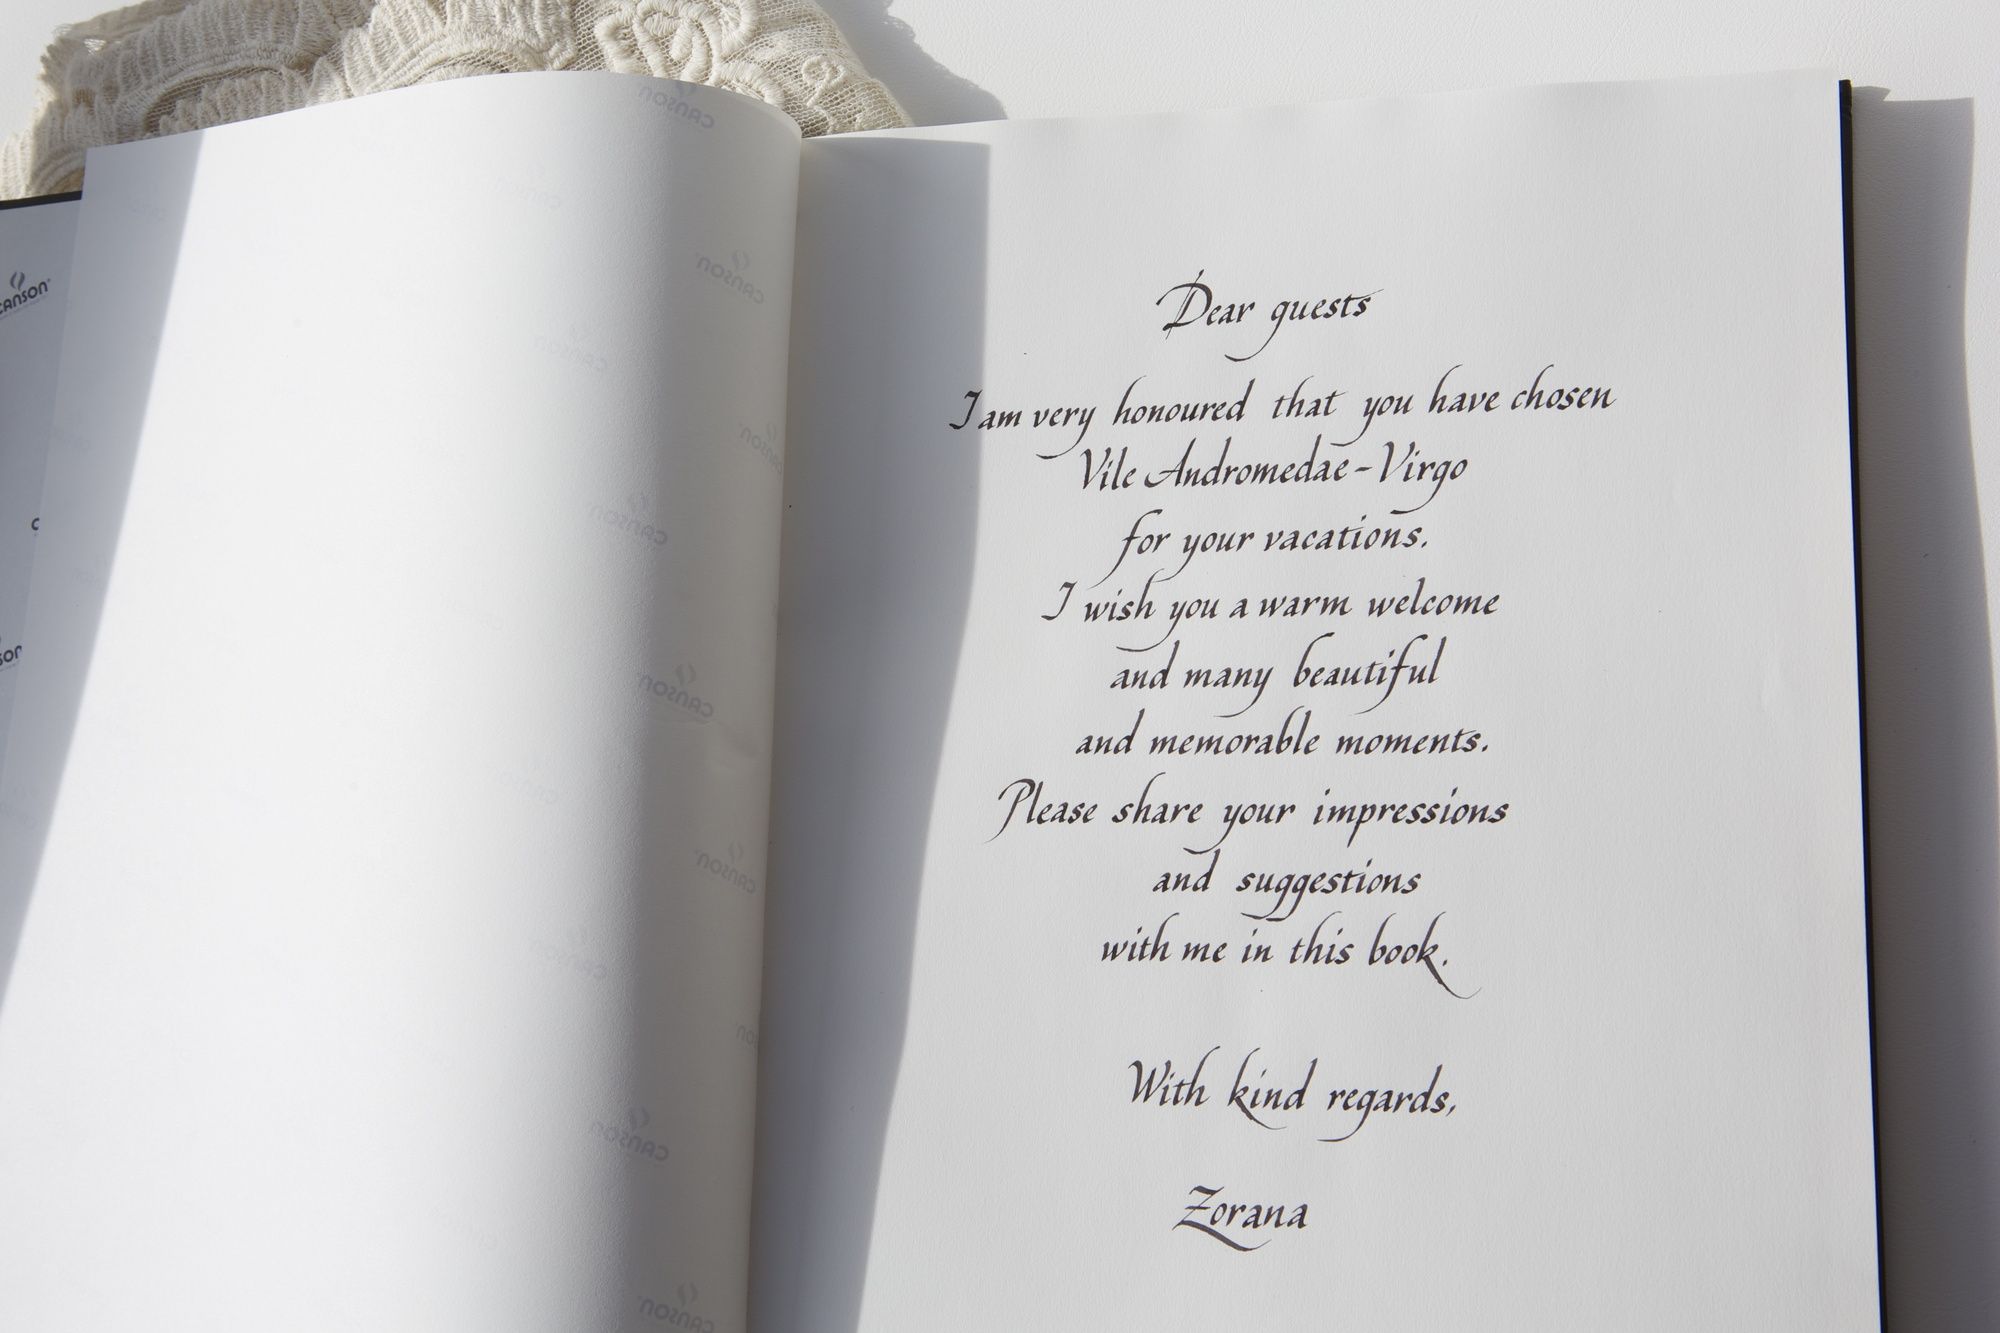 canson
Dear guests
I am very honoured that you have chosen
Vile Andromedae-Virgo
for your vacations.
I wish you a warm welcome
and many beautiful
and memorable moments.
Please share your impressions
and suggestions
with me in this book.
With kind regards,
Zorana